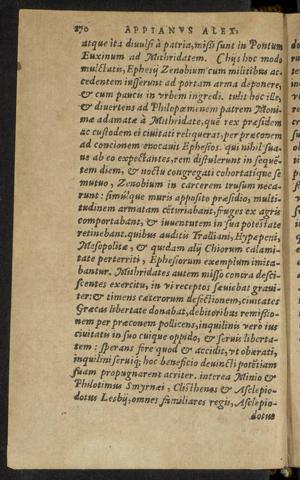 270 APPIANVS ALEX.
atque ita diuulsi à patria, missi sunt in Pontum
Euxinum ad Mithridatem. Chijs hoc modo
mulctatis, Ephesij Zenobium cum militibus ac-
cedentem iusserunt ad portam arma deponere,
& cum paucis in vrbem ingredi. tulit hoc ille,
& diuertens ad Philopœmenem patrem Moni-
mæ adamatæ à Mithridate, quē rex præsidem
ac custodem ei ciuitati reliquerat, per præconem
ad concionem euocauit Ephesios. qui nihil sua-
ue ab eo expectantes, rem distulerunt in sequē-
tem diem, & noctu congregati cohortatique se
mutuo, Zenobium in carcerem trusum neca-
runt: simúlque muris apposito præsidio, multi-
tudinem armatam cēturiabant, fruges ex agris
comportabant, & iuuentutem in sua potestate
retinebant. quibus auditis Tralliani, Hypæpeni,
Mesopolitæ, & quidam alij Chiorum calami-
tate perterriti, Ephesiorum exemplum imita-
bantur. Mithridates autem misso contra desci-
scentes exercitu, in vi receptos sæuiebat graui-
ter: & timens cæterorum defectionem, ciuitates
Græcas libertate donabat, debitoribus remissio-
nem per præconem pollicens, inquilinis vero ius
ciuitatis in suo cuique oppido, & seruis liberta-
tem: sperans fore quod & accidit, vt obærati,
inquilini seruíq; hoc beneficio deuincti potētiam
suam propugnarent acriter. interea Minio &
Philotimus Smyrnæi, Clisthenes & Asclepio-
dotus Lesbij, omnes familiares regis, Asclepio-
dotus